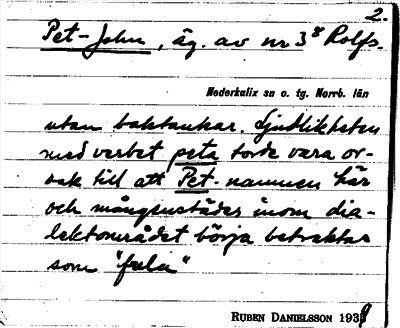 2.
Pet-John, äg. av nr 3⁸ Rolfs.
Nederkalix sn o. tg. Norrb. län
utan baktankar. Ljudlikheten
med verbet peta torde vara or-
sak till att Pet-namnen här
och mångenstädes inom dia-
lektområdet börja betraktas
som "fula"
RUBEN DANIELSSON 1938